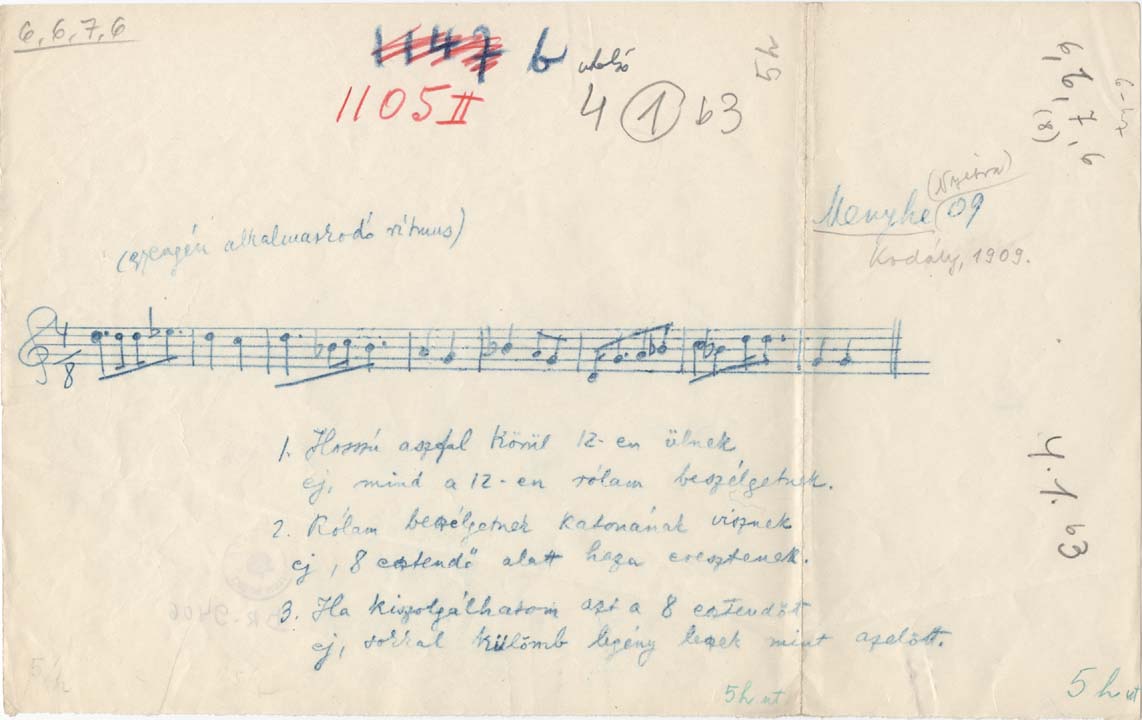 6, 6, 7, 6
1147 b
utolsó
5h
1105 II
4 1 b3
6, 6, 7, 6
(8)
(Nyitra)
Menyhe 09
Kodály, 1909.
(szegén alkalmazkodó ritmus)
4
8
1. Hosszú aszfal körül 12-en ülnek
ej, mind a 12-en rólam beszélgetnek.
2. Rólam beszélgetnek katonának visznek
ej, 8 esztendő alatt haza eresztenek.
3. Ha kiszolgálhatom azt a 8 esztendőt
ej, sokkal külömb legény leszek mint azelőtt.
4. 1. b3
5/h
5h ut
5h ut